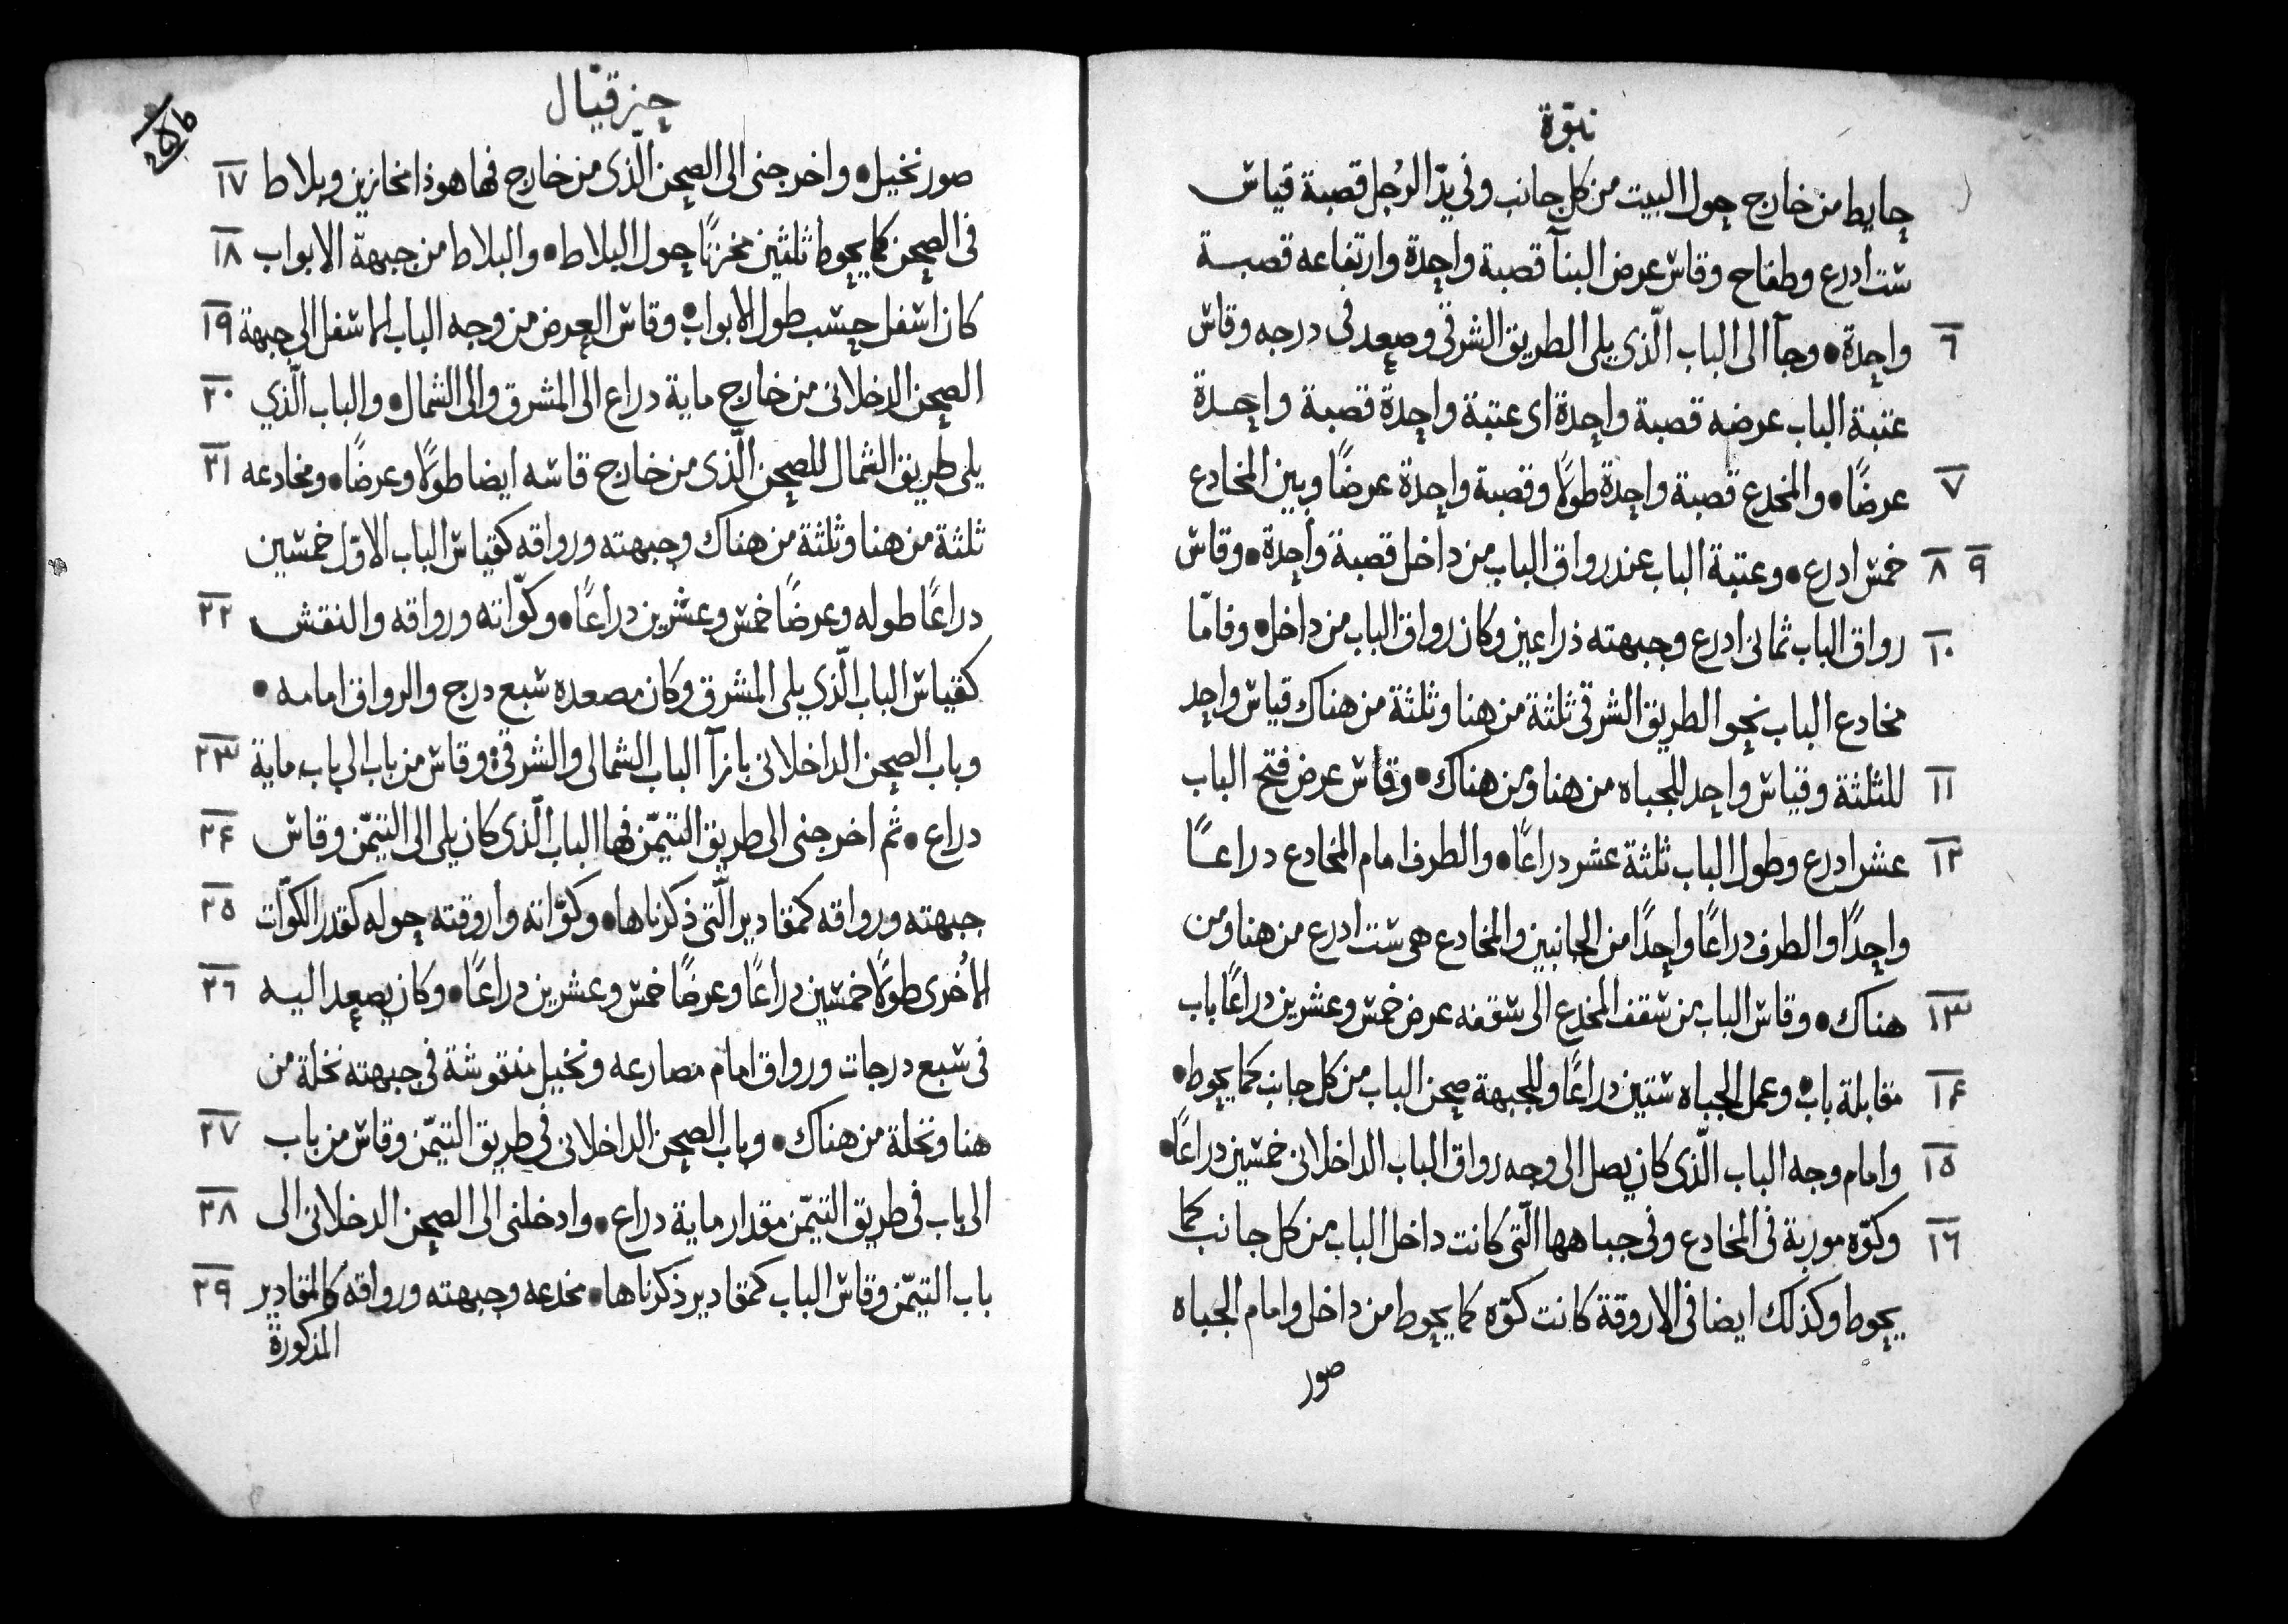 نبوّة
حايط من خارج حول البيت من كل جانب وفي يدّ الرُجل قصبة قياس
ست ادرع وطفاح وقاس عرض البنآ قصبة واحدة وارتفاعه قصبة
٦ واحدة • وجآ الى الباب الّذى يلى الطريق الشرقي وصعد فى درجه وقاس
عتبة الباب عرضه قصبة واحدة اى عتبة واحدة قصبة واحدة
٧ عرضًا • والمخدع قصبة واحدة طولًا وقصبة واحدة عرضًا وبين المخادع
٨ ٩ خمس ادرع • وعتبة الباب عند رواق الباب من داخل قصبة واحدة • وقاس
١٠ رواق الباب ثمانى ادرع وجبهته ذراعين وكان رواق الباب من داخل • وفامّا
مخادع الباب نحو الطريق الشرقي ثلثة من هنا وثلثة من هناك قياس واحد
١١ للثلثة وقياس واحد للجباه من هنا ومن هناك • وقاس عرض فتح الباب
١٢ عشر ادرع وطول الباب ثلثة عشر دراعًا • والطرف امام المخادع دراعًا
واحدًا والطرف دراعًا واحدًا من الجانبين والمخادع هى ست ادرع من هنا ومن
١٣ هناك • وقاس الباب من سقف المخدع الى سقفه عرض خمس وعشرين دراعًا باب
١٤ مقابلة باب • وعمل الجباه ستين دراعًا وللجبهة صحن الباب من كل جانب كما يحوط •
١٥ وامام وجه الباب الّذى كان يصل الى وجه رواق الباب الداخلانى خمسين دراعًا •
١٦ وكوّه موربة فى المخادع وفى جباهها الّتى كانت داخل الباب من كل جانب كما
يحوط وكذلك ايضا فى الاروقة كانت كوّه كما يحوط من داخل وامام الجباه
صور
حزقيال
صور نخيل • واخرجنى الى الصحن الّذى من خارج فها هوذا مخازين وبلاط ١٧
فى الصحن كما يحوط ثلثين مخزنًا حول البلاط • والبلاط من جبهة الابواب ١٨
كان اسفل حسب طول الابواب • وقاس العرض من وجه الباب الاسفل الى جبهة ١٩
الصحن الدخلانى من خارج ماية دراع الى المشرق والى الشمال • والباب الّذي ٢٠
يلى طريق الشمال للصحن الّذى من خارج قاسه ايضا طولًا وعرضًا • ومخادعه ٢١
ثلثة من هنا وثلثة من هناك وجبهته ورواقه كقياس الباب الاوّل خمسين
دراعًا طوله وعرضًا خمس وعشرين دراعًا • وكوّاته ورواقه والنقش ٢٢
كقياس الباب الّذي يلى المشرق وكان مصعده سبع درج والرواق امامه •
وباب الصحن الداخلانى بازآ الباب الشمالى والشرقى • وقاس من باب الى باب ماية ٢٣
دراع • ثم اخرجنى الى طريق التيمّن فها الباب الّذى كان يلى الى التيمّن وقاس ٢٤
جبهته ورواقه كمقادير الّتى ذكرناها • وكوّاته واروقته حوله كقدر الكوّات ٢٥
الاُخرى طولًا خمسين دراعًا وعرضًا خمس وعشرين دراعًا • وكان يصعد اليه ٢٦
فى سبع درجات ورواق امام مصارعه ونخيل منقوشة فى جبهته نخلة من
هنا ونخلة من هناك • وباب الصحن الداخلانى فى طريق التيمّن وقاس من باب ٢٧
الى باب فى طريق التيمّن مقدار ماية دراع • وادخلنى الى الصحن الدخلانى الى ٢٨
باب التيمّن وقاس الباب كمقادير ذكرناها • مخدعه وجبهته ورواقه كالمقادير ٢٩
المذكورة